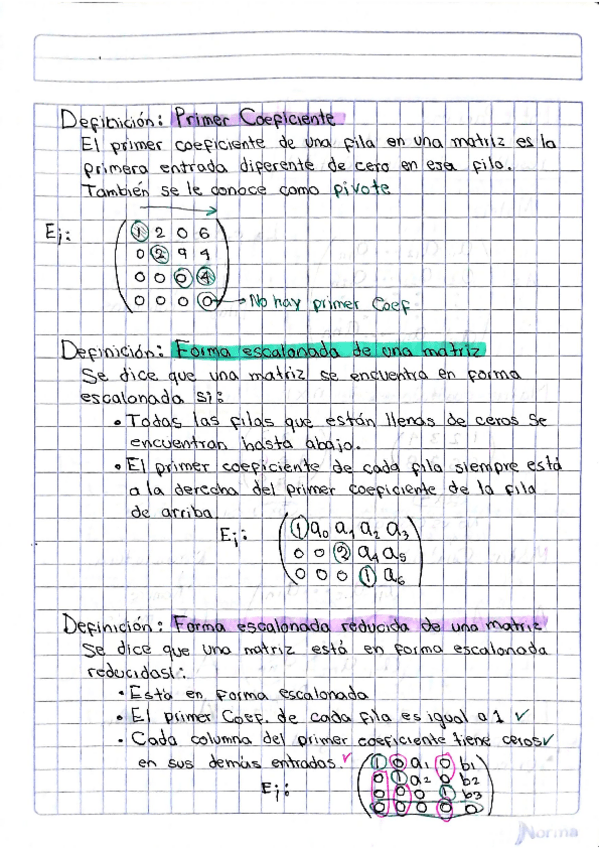 Definición: Primer Coeficiente
El primer coeficiente de una fila en una matriz es la
primera entrada diferente de cero en esa fila.
También se le conoce como pivote
Ej:
1 2 0 6
0 2 9 4
0 0 0 4
0 0 0 0 → No hay primer Coef
Definición: Forma escalonada de una matriz
Se dice que una matriz se encuentra en forma
escalonada si:
• Todas las filas que están llenas de ceros se
encuentran hasta abajo.
• El primer coeficiente de cada fila siempre está
a la derecha del primer coeficiente de la fila
de arriba
Ej:
1 a0 a1 a2 a3
0 0 2 a4 a5
0 0 0 1 a6
Definición: Forma escalonada reducida de una matriz
Se dice que una matriz está en forma escalonada
reducida si:
• Está en forma escalonada
• El primer Coef. de cada fila es igual a 1 ✓
• Cada columna del primer coeficiente tiene ceros ✓
en sus demás entradas. ✓
Ej:
1 0 a1 0 b1
0 1 a2 0 b2
0 0 0 1 b3
0 0 0 0 0
Norma